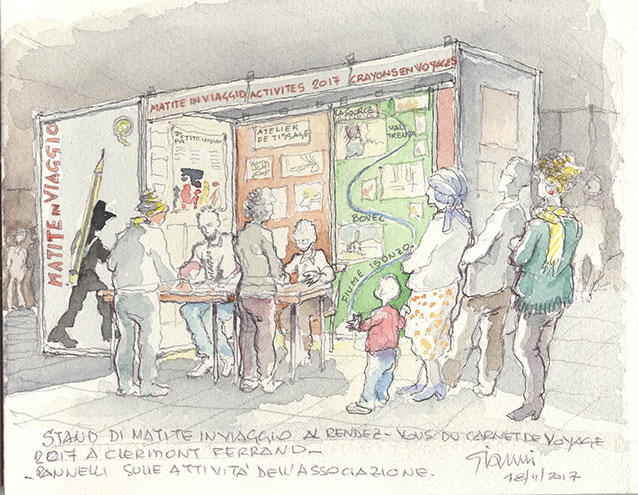 MATITE IN VIAGGIO ACTIVITES 2017 CRAYONS EN VOYAGES
MATITE IN VIAGGIO
ATELIER
DE TISSAGE
LA SOURCE
VAL
TRENTA
BOVEC
FIUME ISONZO
STAND DI MATITE IN VIAGGIO AL RENDEZ-VOUS DU CARNET DE VOYAGE
2017 A CLERMONT FERRAND -
- PANNELLI SULLE ATTIVITA' DELL'ASSOCIAZIONE.
Gianni
18/11/2017